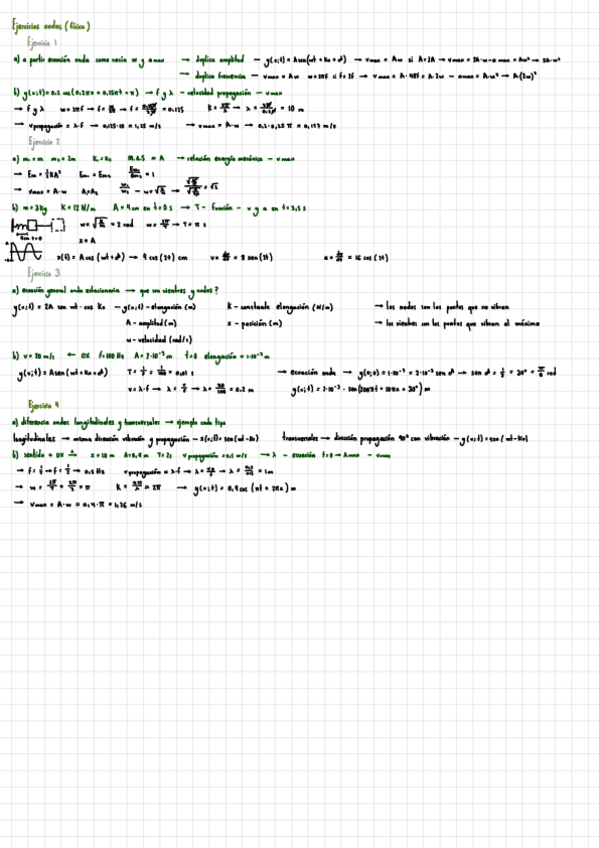 Ejercicios ondas (física)
Ejercicio 1
a) a partir ecuación onda como varia w y amax → duplica amplitud – y(x;t) = A sen(wt + Kx + φ) → vmax = Aw si A=2A → vmax = 2A·w – a max = Aw² → 2A·w²
→ duplica frecuencia – vmax = Aw w=2πf si f=2f → vmax = A·4πf = A·2w – amax = A·w² → A·(2w)²
→ f y λ w = 2πf → f = = 0,125 K = → λ = = 10 m
→ vpropagación = λ·f → 0,125·10 = 1,25 m/s → vmax = A·w → 0,2·0,25π = 0,157 m/s
Ejercicio 2
a) m₁ = m m₂ = 2m K₁ = K₂ M.A.S = A → relación energía mecánica – vmax
→ Em = ½KA² Em₁ = Em₂ = 1
→ vmax = A·w A₁ = A₂
b) m = 3 kg K = 12 N/m A = 4 cm en t = 0 s → T – función – v y a en t = 3,5 s
4cm t=0
x = A
x(t) = A cos (wt + φ) → 4 cos (2t) cm v = = 8 sen (2t) a = = 16 cos (2t)
Ejercicio 3
a) ecuación general onda estacionaria → que son vientres y nodos?
y(x;t) = 2A sen wt · cos Kx – y(x;t) – elongación (m) K – constante elongación (N/m) → los nodos son los puntos que no vibran
A – amplitud (m) x – posición (m) → los vientres son los puntos que vibran al máximo
w – velocidad (rad/s)
b) v = 20 m/s ← OX f = 100 Hz A = 2·10⁻³ m t=0 elongación = 1·10⁻³ m
y(x;t) = A sen (wt + Kx + φ) T = = = 0,01 s → ecuación onda → y(0;0) = 1·10⁻³ = 2·10⁻³ sen φ → sen φ = = 30º = rad
v = λ·f → λ = → λ = = 0,2 m y(x;t) = 2·10⁻³ · sen (200πt + 10πx + 30º) m
Ejercicio 4
a) diferencia ondas longitudinales y transversales → ejemplo cada tipo
longitudinales → misma dirección vibración y propagación – x(x;t) = sen (wt – Kx) transversales → dirección propagación 90º con vibración – y(x;t) = sen (wt – Kx)
b) sentido + OX x = 10 m A = 0,4 m T = 2s vpropagación = 0,5 m/s → λ – ecuación t=0 → Amax – vmax
→ f = → f = → 0,5 Hz vpropagación = λ·f → λ = → λ = = 1m
→ w = = = π K = = 2π → y(x;t) = 0,4 cos (πt + 2πx) m
→ vmax = A·w = 0,4·π = 1,26 m/s